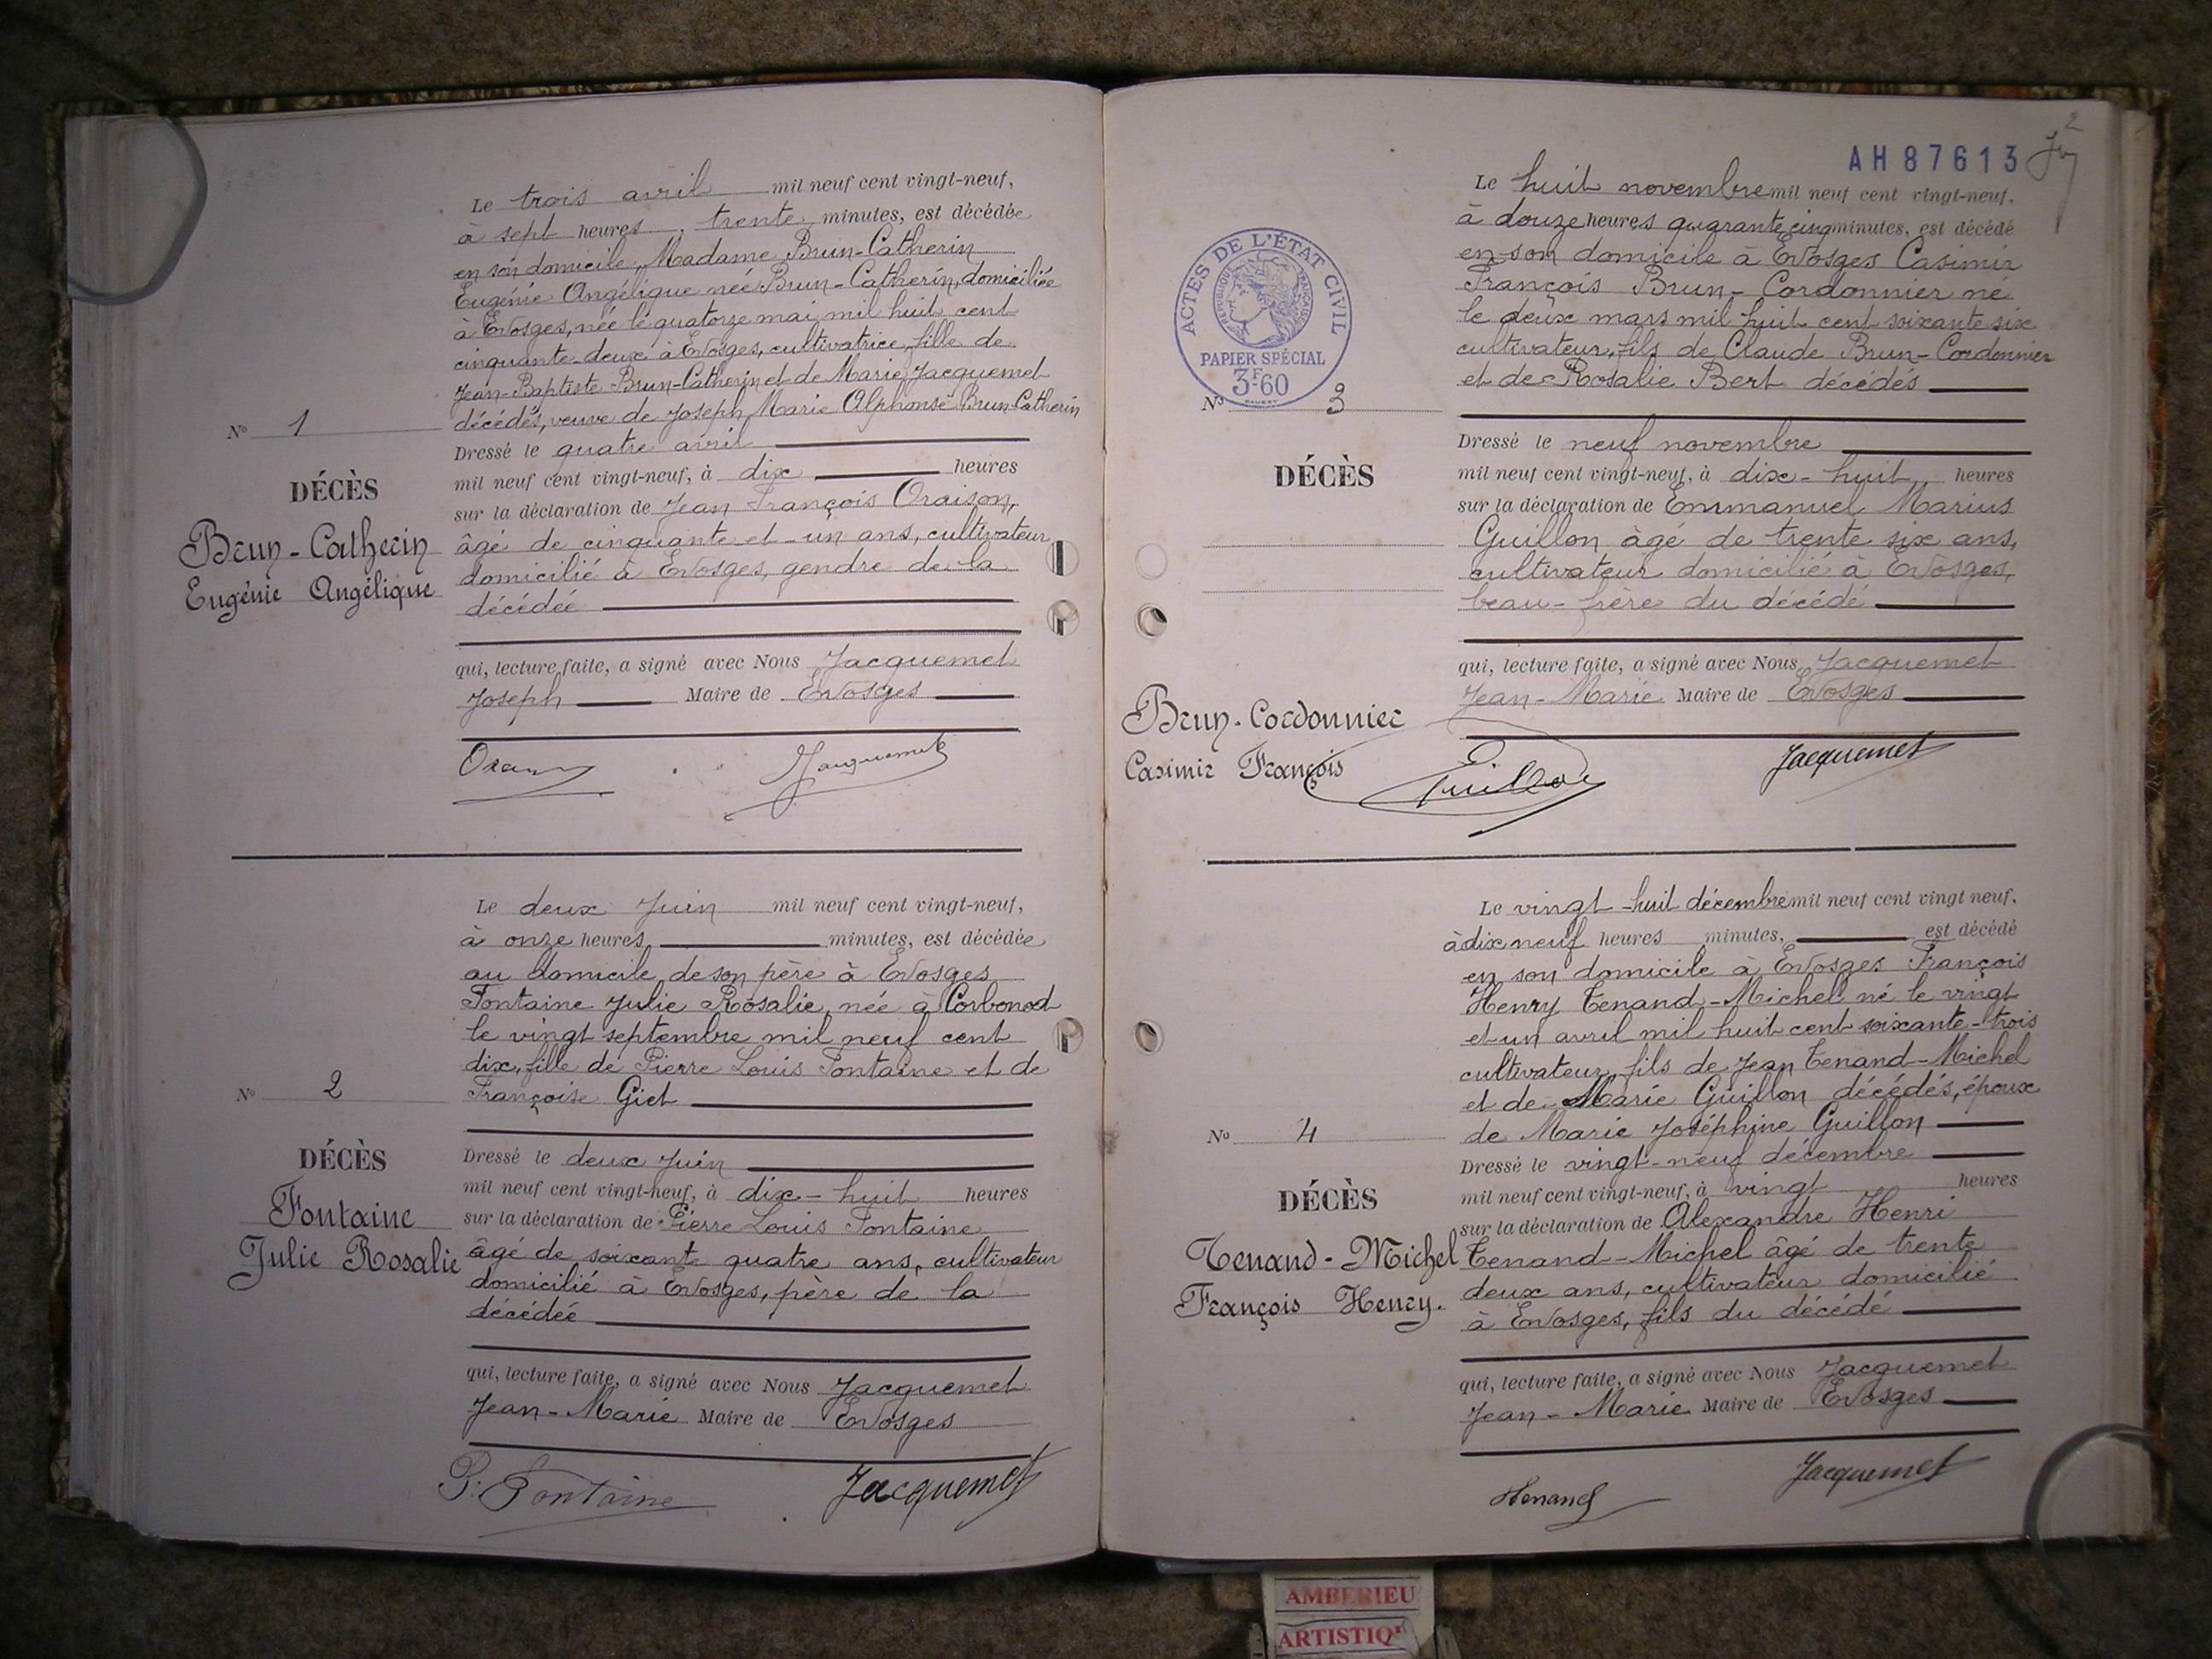 Le trois avril mil neuf cent vingt-neuf,
à sept heures, trente minutes, est décédée
en son domicile, Madame Brun-Catherin
Eugénie Angélique née Brun-Catherin, domiciliée
à Evosges, née le quatorze mai mil huit cent
cinquante-deux à Evosges, cultivatrice, fille de
Jean-Baptiste Brun-Catherin et de Marie Jacquemet
décédés, veuve de Joseph Marie Alphonse Brun Catherin
No 1
DÉCÈS
Brun-Catherin
Eugénie Angélique
Dressé le quatre avril
mil neuf cent vingt-neuf, à dix heures
sur la déclaration de Jean François Oraison,
âgé de cinquante-et-un ans, cultivateur
domicilié à Evosges, gendre de la
décédée
qui, lecture faite, a signé avec Nous Jacquemet
Joseph Maire de Evosges
Jacquemet
Le deux Juin mil neuf cent vingt-neuf,
à onze heures minutes, est décédée
au domicile de son père à Evosges
Fontaine Julie Rosalie, née à Corbonod
le vingt septembre mil neuf cent
dix, fille de Pierre Louis Fontaine et de
Françoise Giet
No 2
DÉCÈS
Fontaine
Julie Rosalie
Dressé le deux Juin
mil neuf cent vingt-neuf, à dix-huit heures
sur la déclaration de Pierre Louis Fontaine
âgé de soixante quatre ans, cultivateur
domicilié à Evosges, père de la
décédée
qui, lecture faite, a signé avec Nous Jacquemet
Jean-Marie Maire de Evosges
P. Fontaine Jacquemet
2
AH87613
ACTES DE L'ÉTAT CIVIL
RÉPUBLIQUE FRANÇAISE
PAPIER SPÉCIAL
3F60
Le huit novembre mil neuf cent vingt-neuf,
à douze heures quarante cinq minutes, est décédé
en son domicile à Evosges Casimir
François Brun-Cordonnier né
le deux mars mil huit cent soixante six
cultivateur, fils de Claude Brun-Cordonnier
et de Rosalie Bert décédés
No 3
DÉCÈS
Brun-Cordonnier
Casimir François
Dressé le neuf novembre
mil neuf cent vingt-neuf, à dix-huit heures
sur la déclaration de Emmanuel Marius
Guillon âgé de trente six ans,
cultivateur domicilié à Evosges,
beau-frère du décédé
qui, lecture faite, a signé avec Nous Jacquemet
Jean-Marie Maire de Evosges
Guillon Jacquemet
Le vingt-huit décembre mil neuf cent vingt neuf,
à dix neuf heures minutes, est décédé
en son domicile à Evosges François
Henry Tenand-Michel né le vingt
et un avril mil huit cent soixante-trois
cultivateur, fils de Jean Tenand-Michel
et de Marie Guillon décédés, époux
de Marie Joséphine Guillon
No 4
DÉCÈS
Tenand-Michel
François Henry.
Dressé le vingt-neuf décembre
mil neuf cent vingt-neuf, à vingt heures
sur la déclaration de Alexandre Henri
Tenand-Michel âgé de trente
deux ans, cultivateur domicilié
à Evosges, fils du décédé
qui, lecture faite, a signé avec Nous Jacquemet
Jean-Marie Maire de Evosges
Tenand Jacquemet
AMBERIEU
ARTISTIQ